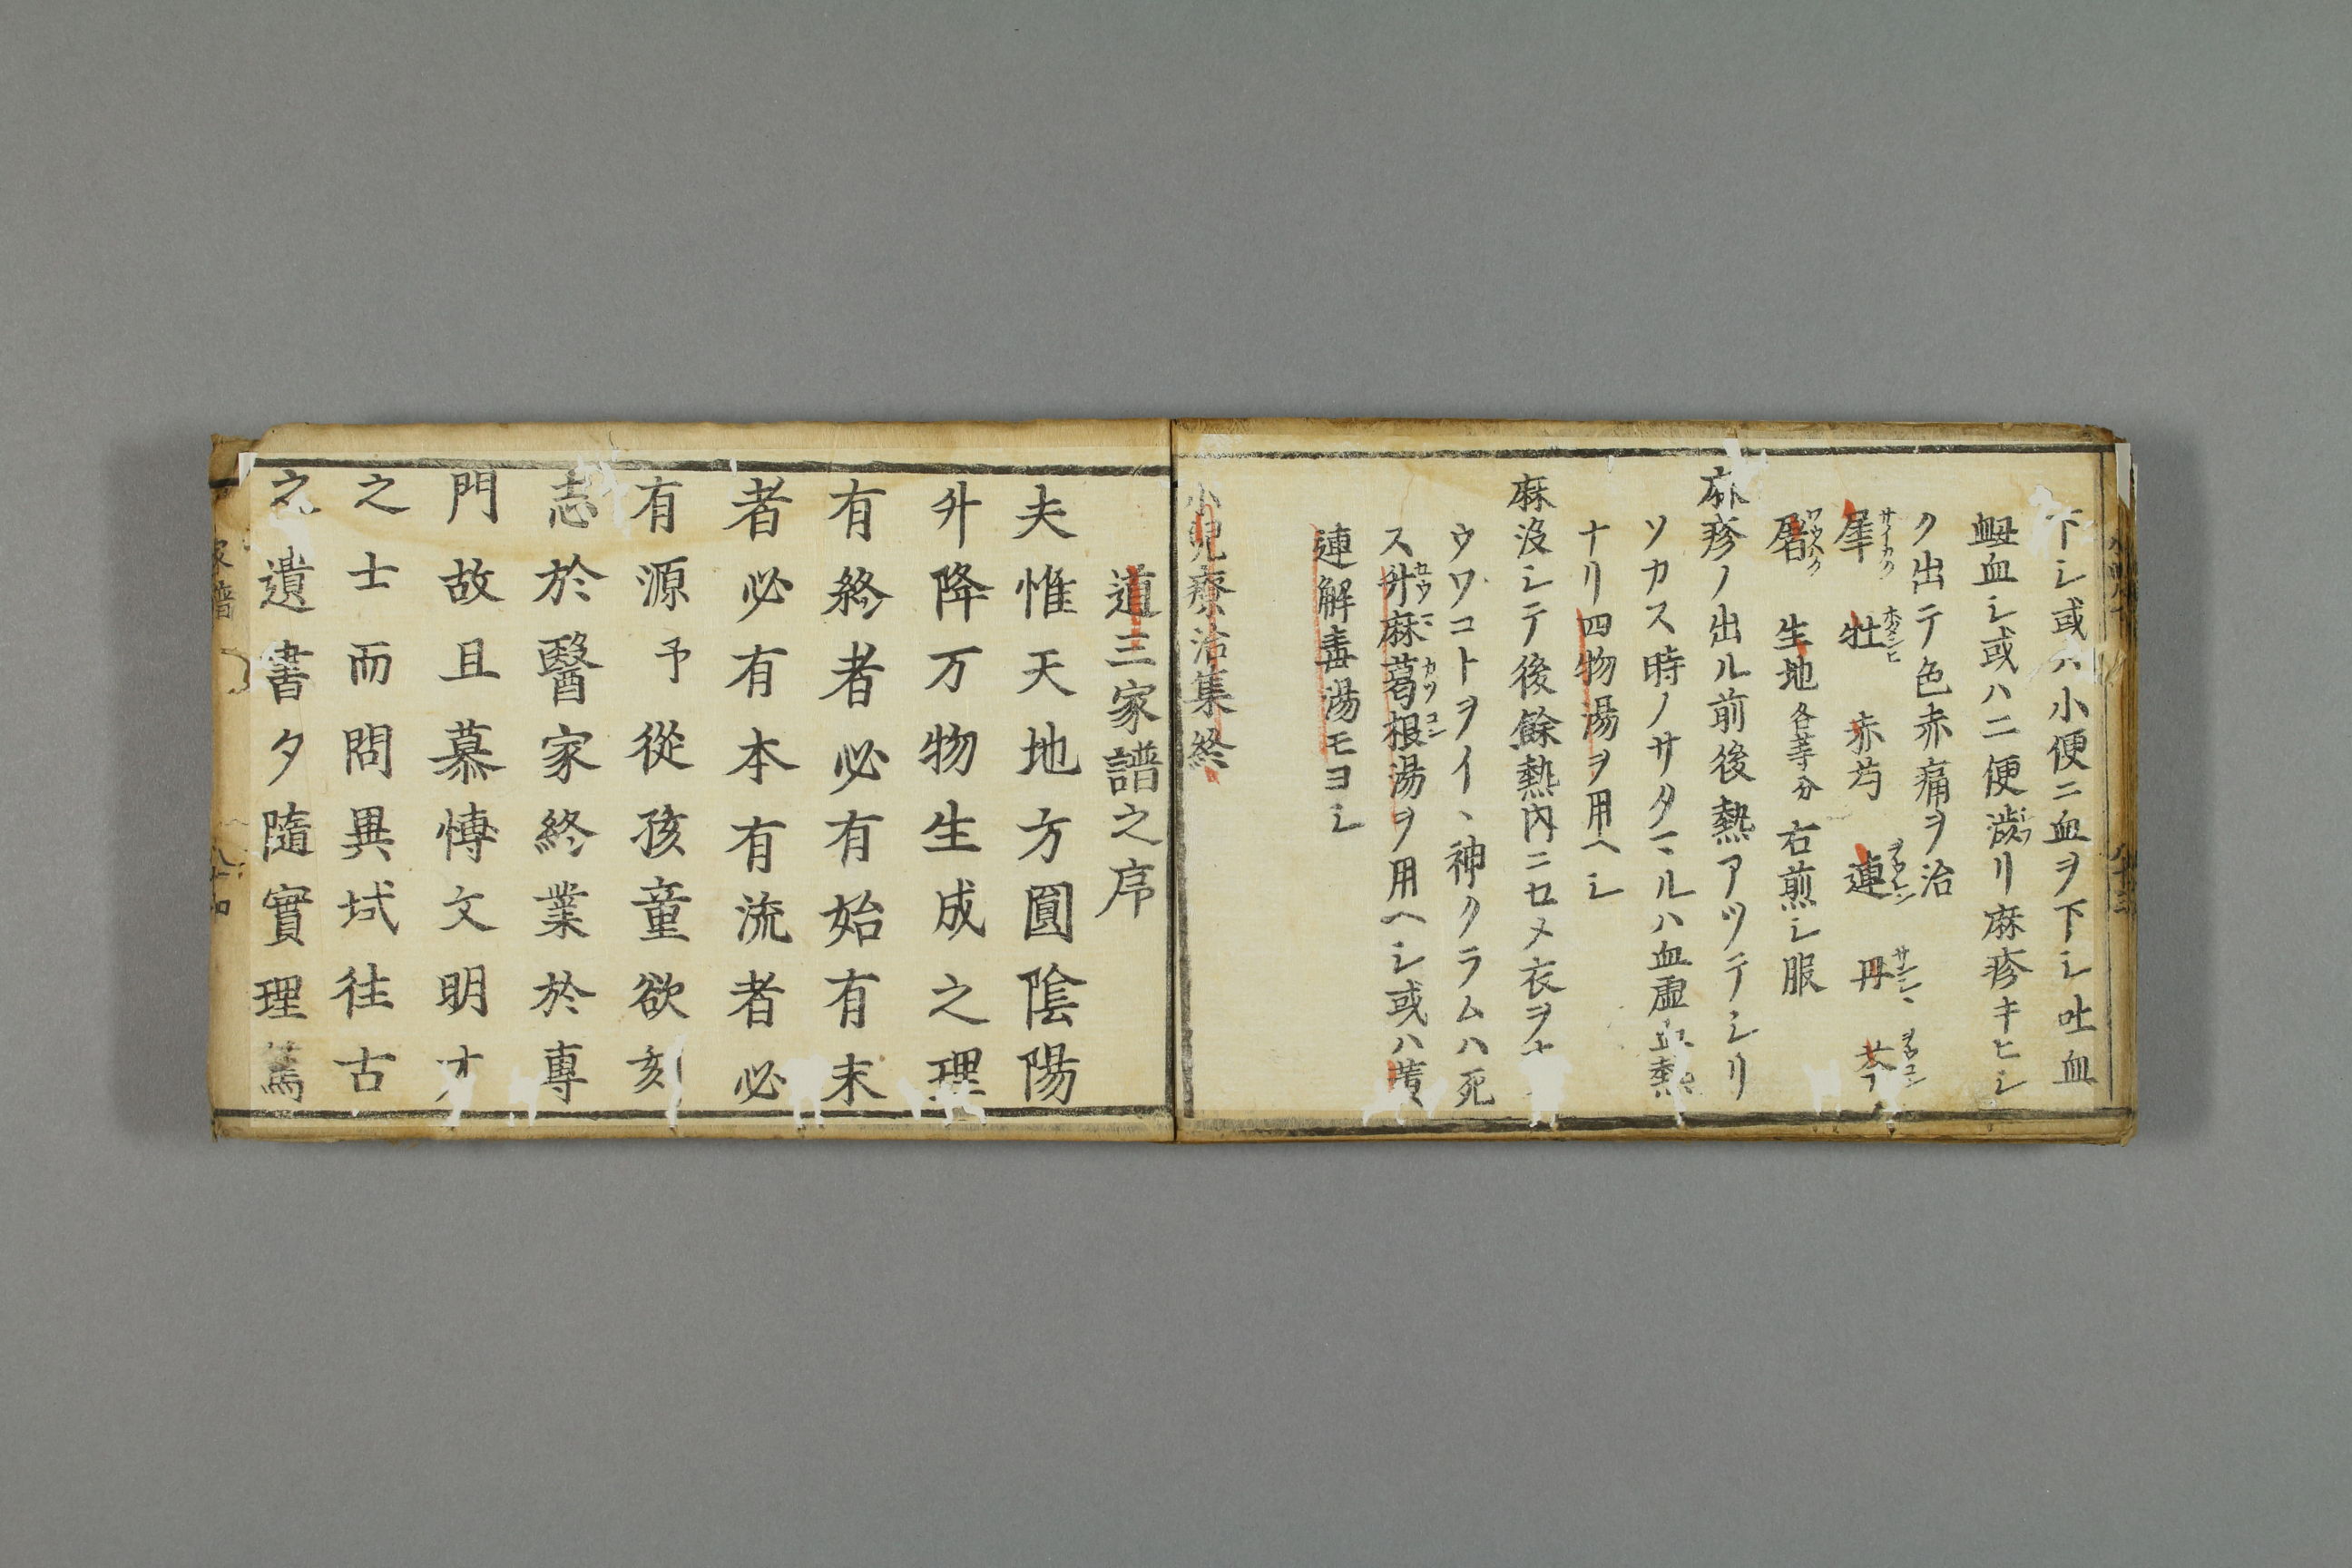 下シ或ハ小便ニ血ヲ下シ吐血
衂血シ或ハ二便澁リ麻疹キヒシ
ク出テ色赤痛ヲ治
犀 牡 赤芍 連 丹 芩
サイカク ホタンヒ ヲウレン サンシヽ ヲウコン
石膏 生地各等分右煎シ服
麻疹ノ出ル前後熱アツテシリ
ソカス時ノサタマルハ血虚血熱
ナリ四物湯ヲ用ヘシ
麻没シテ後餘熱内ニセメ衣ヲナ
ウワコトヲイヽ神クラムハ死
ス升麻葛根湯ヲ用ヘシ或ハ黄
連解毒湯モヨシ
小兒療治集終
道三家譜之序
夫惟天地方圓陰陽
升降万物生成之理
有終者必有始有末
者必有本有流者必
有源予從孩童欲刻
志於醫家終業於專
門故且慕慱文明才
之士而問異域往古
之遺書夕隨實理篤